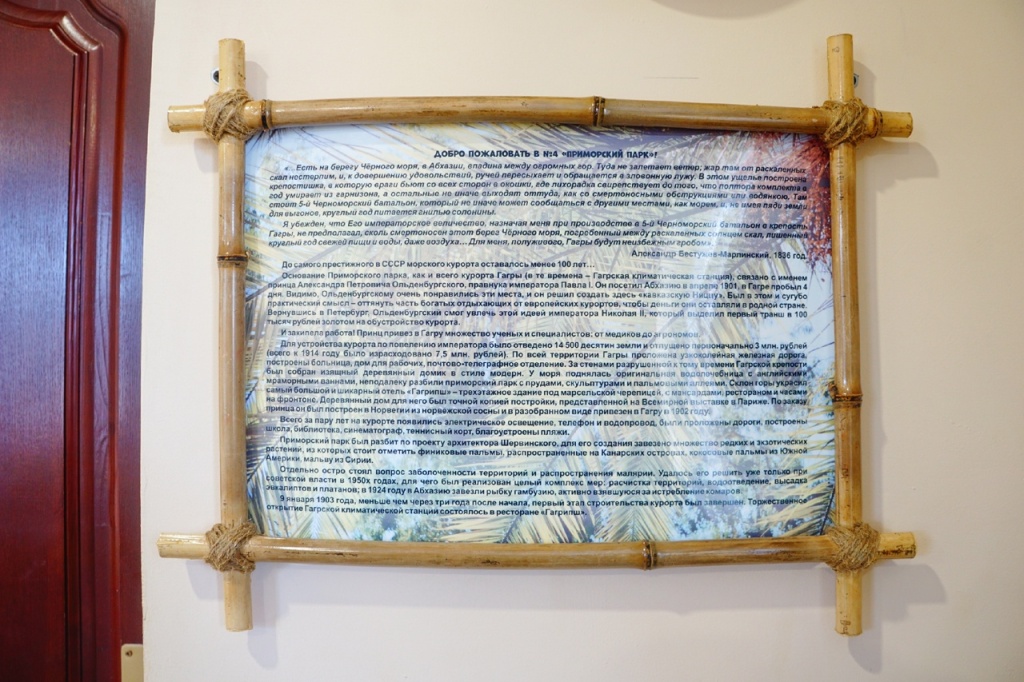 ДОБРО ПОЖАЛОВАТЬ В №4 «ПРИМОРСКИЙ ПАРК»!
«... Есть на берегу Чёрного моря, в Абхазии, впадина между огромных гор. Туда не залетает ветер; жар там от раскаленных
скал нестерпим, и, к довершению удовольствий, ручей пересыхает и обращается в зловонную лужу. В этом ущелье построена
крепостишка, в которую враги бьют со всех сторон в окошки, где лихорадка свирепствует до того, что полтора комплекта в
год умирает из гарнизона, а остальные не иначе выходят оттуда, как со смертоносными обструкциями или водянкою. Там
стоит 5-й Черноморский батальон, который не иначе может сообщаться с другими местами, как морем, и, не имея пяди земли
для выгонов, круглый год питается гнилью солонины.
Я убежден, что Его императорское величество, назначая меня при производстве в 5-й Черноморский батальон в крепость
Гагры, не предполагал, сколь смертоносен этот берег Чёрного моря, погребенный между раскаленных солнцем скал, лишенный
круглый год свежей пищи и воды, даже воздуха... Для меня, полуживого, Гагры будут неизбежным гробом».
Александр Бестужев-Марлинский, 1836 год.
До самого престижного в СССР морского курорта оставалось менее 100 лет...
Основание Приморского парка, как и всего курорта Гагры (в те времена – Гагрская климатическая станция), связано с именем
принца Александра Петровича Ольденбургского, правнука императора Павла I. Он посетил Абхазию в апреле 1901, в Гагре пробыл 4
дня. Видимо, Ольденбургскому очень понравились эти места, и он решил создать здесь «кавказскую Ниццу». Был в этом и сугубо
практический смысл – оттянуть часть богатых отдыхающих от европейских курортов, чтобы деньги они оставляли в родной стране.
Вернувшись в Петербург, Ольденбургский смог увлечь этой идеей императора Николая II, который выделил первый транш в 100
тысяч рублей золотом на обустройство курорта.
И закипела работа! Принц привез в Гагру множество ученых и специалистов: от медиков до агрономов.
Для устройства курорта по повелению императора было отведено 14 500 десятин земли и отпущено первоначально 3 млн. рублей
(всего к 1914 году было израсходовано 7,5 млн. рублей). По всей территории Гагры проложена узкоколейная железная дорога,
построены больница, дом для рабочих, почтово-телеграфное отделение. За стенами разрушенной к тому времени Гагрской крепости
был собран изящный деревянный домик в стиле модерн. У моря поднялась оригинальная водолечебница с английскими
мраморными ваннами, неподалеку разбили приморский парк с прудами, скульптурами и пальмовыми аллеями. Склон горы украсил
самый большой и шикарный отель «Гагрипш» – трехэтажное здание под марсельской черепицей, с мансардами, рестораном и часами
на фронтоне. Деревянный дом для него был точной копией постройки, представленной на Всемирной выставке в Париже. По заказу
принца он был построен в Норвегии из норвежской сосны и в разобранном виде привезен в Гагру в 1902 году.
Всего за пару лет на курорте появились электрическое освещение, телефон и водопровод, были проложены дороги, построены
школа, библиотека, синематограф, теннисный корт, благоустроены пляжи.
Приморский парк был разбит по проекту архитектора Шервинского, для его создания завезено множество редких и экзотических
растений, из которых стоит отметить финиковые пальмы, распространенные на Канарских островах, кокосовые пальмы из Южной
Америки, мальву из Сирии.
Отдельно остро стоял вопрос заболоченности территорий и распространения малярии. Удалось его решить уже только при
советской власти в 1950х годах, для чего был реализован целый комплекс мер: расчистка территорий, водоотведение, высадка
эвкалиптов и платанов; в 1924 году в Абхазию завезли рыбку гамбузию, активно взявшуюся за истребление комаров.
9 января 1903 года, меньше чем через три года после начала, первый этап строительства курорта был завершен. Торжественное
открытие Гагрской климатической станции состоялось в ресторане «Гагрипш».